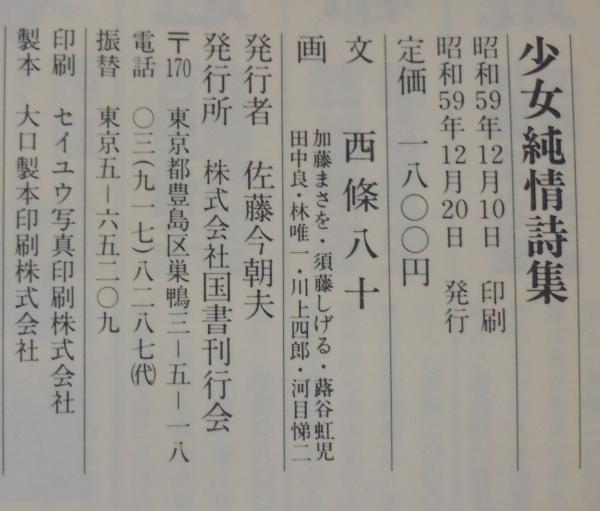 少女純情詩集
昭和59年12月10日 印刷
昭和59年12月20日 発行
定価 一八〇〇円
文 西條八十
画 加藤まさを・須藤しげる・蕗谷虹児
田中良・林唯一・川上四郎・河目悌二
発行者 佐藤今朝夫
発行所 株式会社国書刊行会
〒170 東京都豊島区巣鴨三−五−一八
電話 〇三(九一七)八二八七(代)
振替 東京五−六五二〇九
印刷 セイユウ写真印刷株式会社
製本 大口製本印刷株式会社